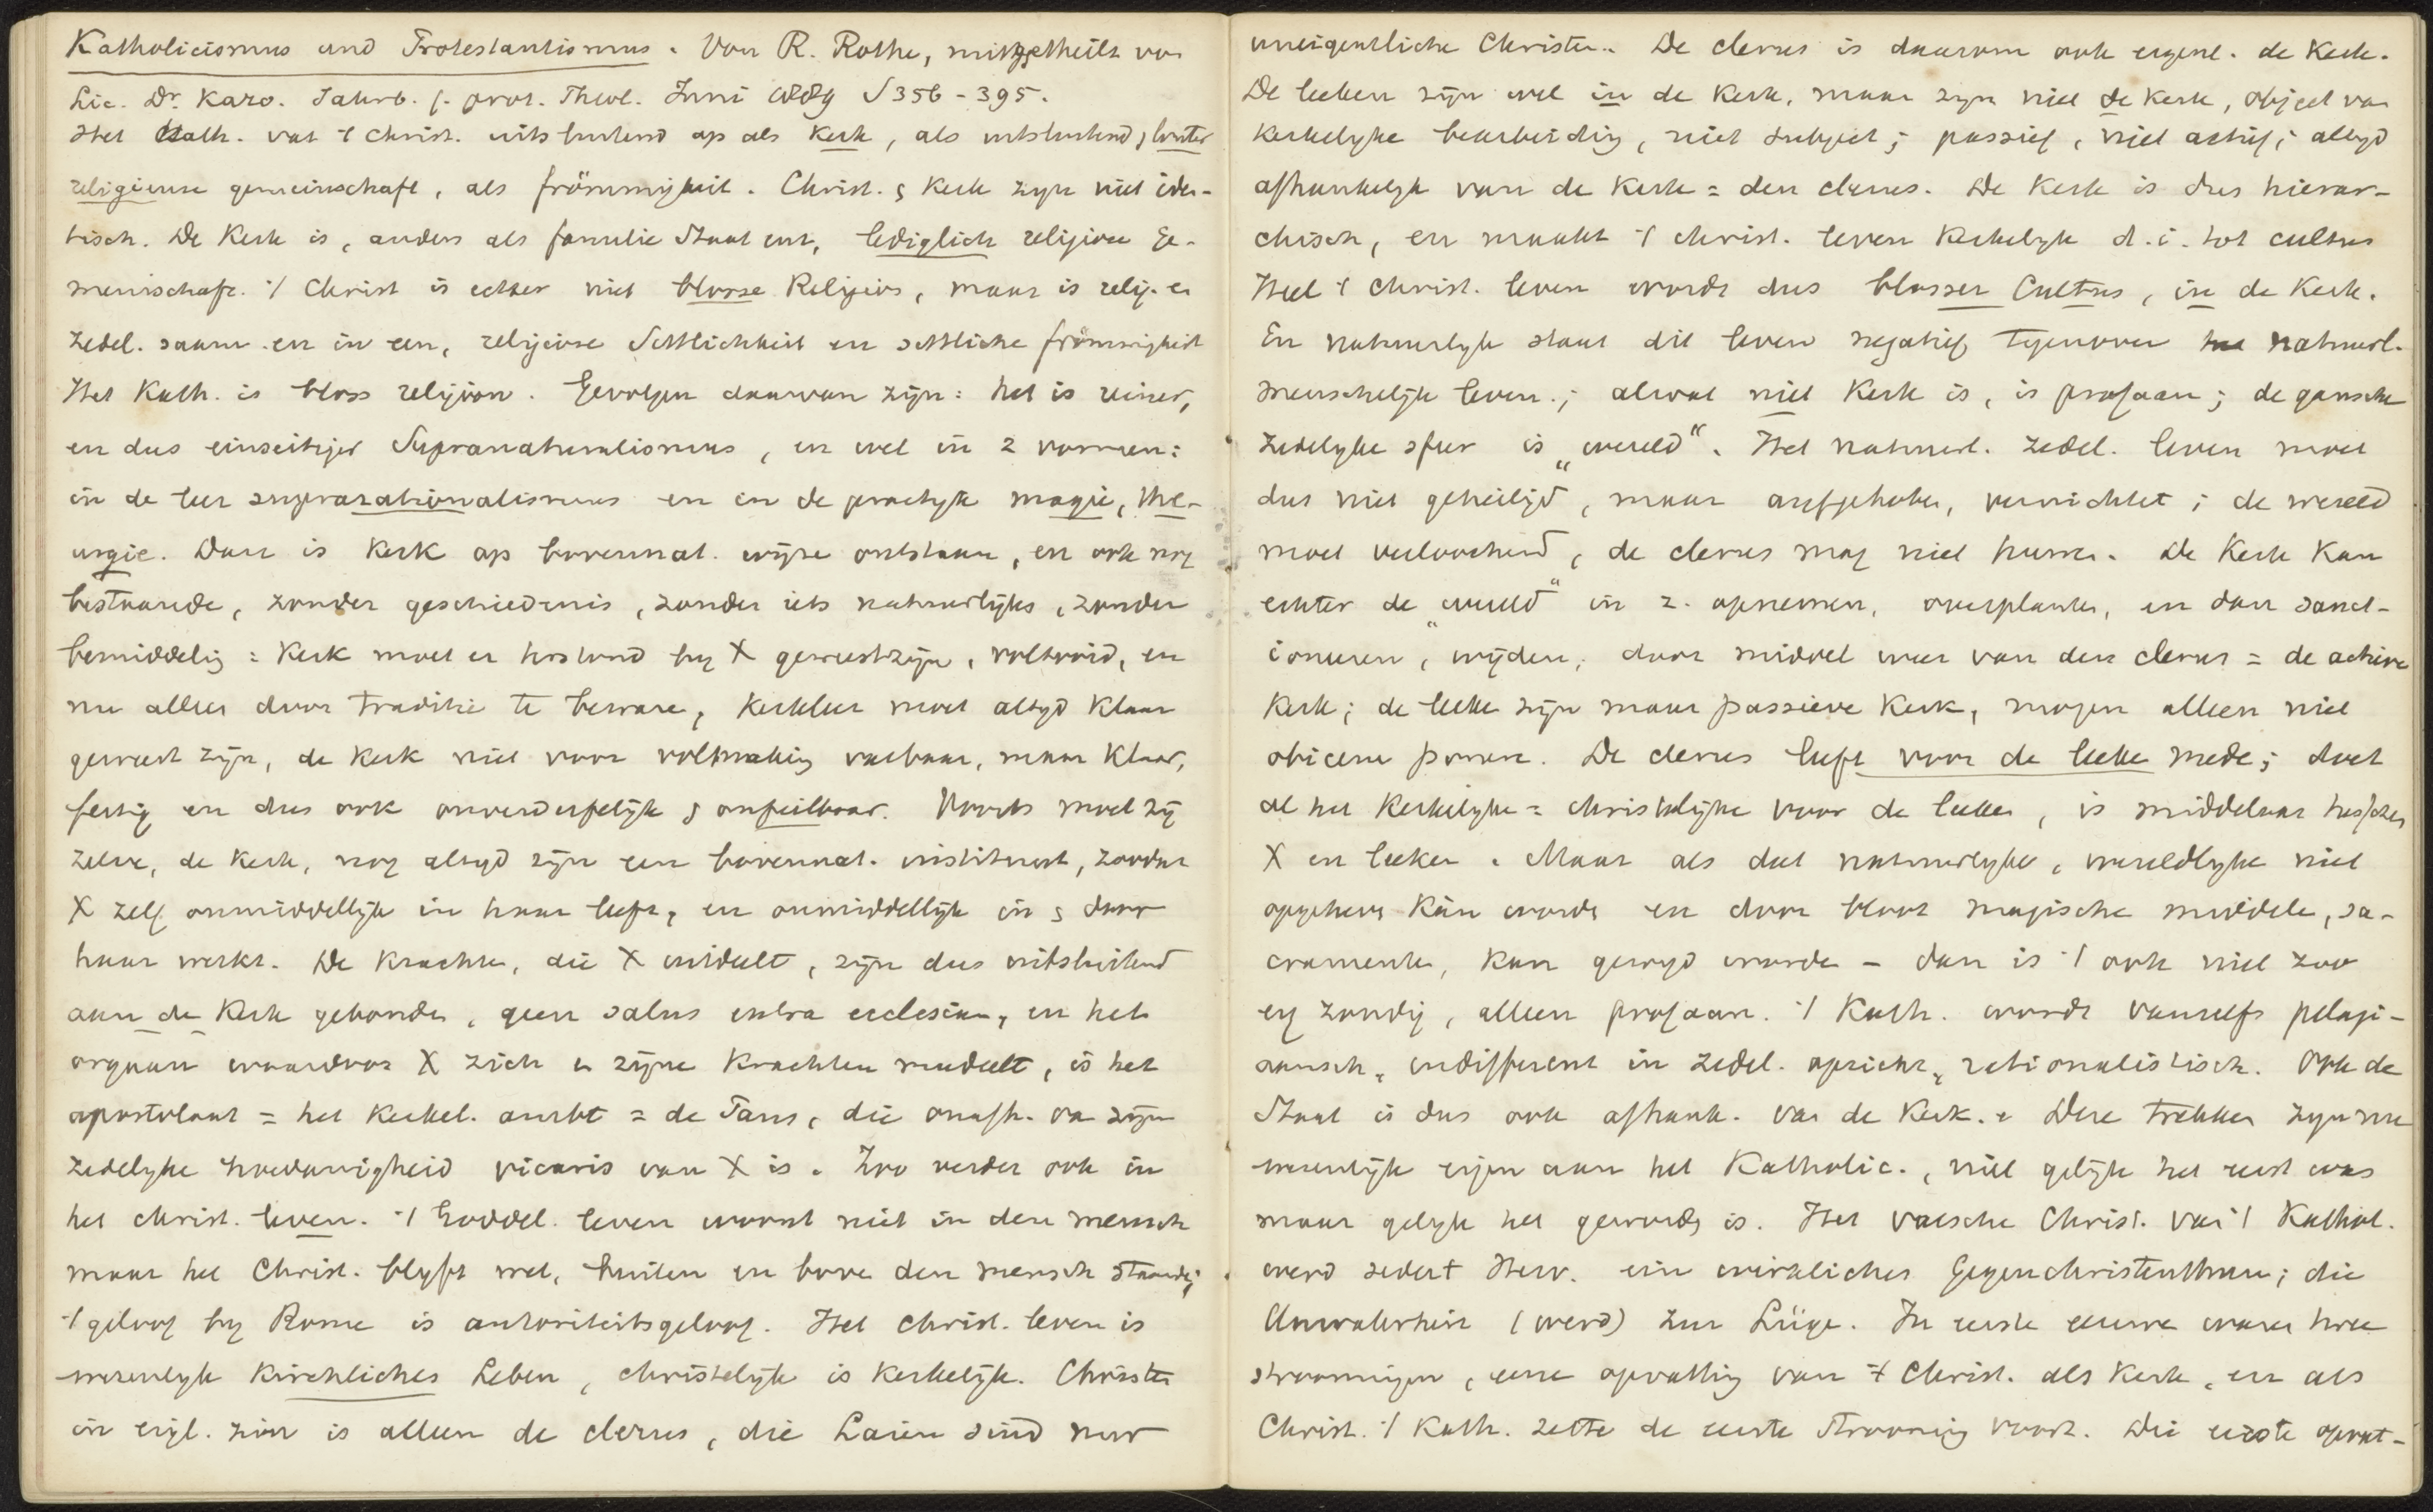 Katholicismus und Protestantismus. Von R. Rothe, mitgetheilt von
Lic. Dr. Karo. Jahrb. f. prot. Theol. Juni 1889 S 356-395.
Het Kath. vat 't Christ. uitsluitend op als Kerk, als uitsluitend, louter
religieuse gemeinschaft, als frömmigkeit. Christ. & Kerk zijn niet iden-
tisch. De Kerk is, anders als familie Staat enz, lediglich religieuse Ge-
meinschaft. 't Christ is echter niet blosse Religion, maar is relig. en
zedel. saam en in een, religieuse Sittlichkeit en sittliche frömmigkeit
Het Kath. is bloss religion. Gevolgen daarvan zijn: het is reiner,
en dus einseitiger Supranaturalismus, en wel in 2 vormen:
in de leer suprarationalismus en in de practijk magie, the-
urgie. Daar is Kerk op bovennat. wijze ontstaan, en ook nog
bestaande, zonder geschiedenis, zonder iets natuurlijks, zonder
bemiddelig: Kerk moet er terstond by X geweest zijn, voltooid, en
nu alles door traditie te beware, Kerkleer moet altyd klaar
geweest zijn, de Kerk niet voor volmaking vatbaar, maar klaar,
fertig en dus ook onverderfelijk & onfeilbaar. Voorts moet zij
zelve, de Kerk, nog altyd zijn een bovennat. instituut, zoodat
X zelf onmiddellijk in haar leeft, en onmiddellijk in & door
haar werkt. De Krachten, die X uitdeelt, zijn dus uitsluitend
aan de Kerk gebonden, geen salus extra ecclesiam, en het
orgaan waardoor X zich en zijne Krachten meedeelt, is het
apostolaat = het Kerkel. ambt = de Paus, die onafh. van zijn
zedelyke hoedanigheid vicaris van X is. Zoo verder ook in
het christ. leven. 't Goddel. leven woont niet in den mensch
maar het Christ. blyft wet, buiten en boven den mensch staande;
't geloof by Rome is autoriteitsgeloof. Het christ. leven is
wezenlyk Kirchliches Leben, christelijk is Kerkelijk. Christen
in eigl. zin is alleen de clerus, die Laien sind nur
uneigentliche Christen. De clerus is daarom ook eigenl. de Kerk.
De leeken zijn wel in de Kerk, maar zyn niet de Kerk, object van
Kerkelyke bearbeiding, niet subject; passief, niet actief; altyd
afhankelijk van de Kerk = den clerus. De Kerk is dus hierar-
chisch, en maakt 't christ. leven Kerkelyk d.i. tot cultus
Heel 't Christ. leven wordt dus blosser Cultus, in de Kerk.
En natuurlyk staat dit leven negatief tegenover het natuurl.
menschelijk leven.; alwat niet Kerk is, is profaan; de gansche
zedelyke sfeer is „wereld“. Het natuurl. zedel. leven moet
dus niet geheiligd, maar aufgehoben, vernichtet; de wereld
moet verloochend, de clerus mag niet huwen. De Kerk kan
echter de „wereld“ in z. opnemen, overplanten, en dan sanct-
ioneeren, wijden, door middel weer van den clerus = de actieve
Kerk; de leeken zijn maar passieve Kerk, mogen alleen niet
obicem ponere. De clerus leeft voor de leeken mede; doet
al het Kerkelyke = christelijke voor de leeken, is middelaar tusschen
X en leeken. Maar als dat natuurlyke, wereldlyke niet
opgeheven kàn worde en door bloot magische middele, sa-
cramenten, kan gewyd worde - dan is 't ook niet zoo
erg zondig, alleen profaan. 't Kath. wordt vanzelf pelagi-
aansch, indifferent in zedel. opzicht, rationalistisch. Ook de
Staat is dus ook afhank. van de Kerk. Deze trekken zyn nu
wezenlijk eigen aan het Katholic., niet gelijk het eerst was
maar gelyk het geworden is. Het valsche Christ. van 't Kathol.
werd sedert Herv. ein wirkliches Gegenchristenthum; die
Unwahrheit (werd) zur Lüge. In eerste eeuwen waren twee
stroomingen, eene opvatting van 't Christ. als Kerk, en als
Christ. 't Kath. zette de eerste strooming voort. Die eerste opvat-